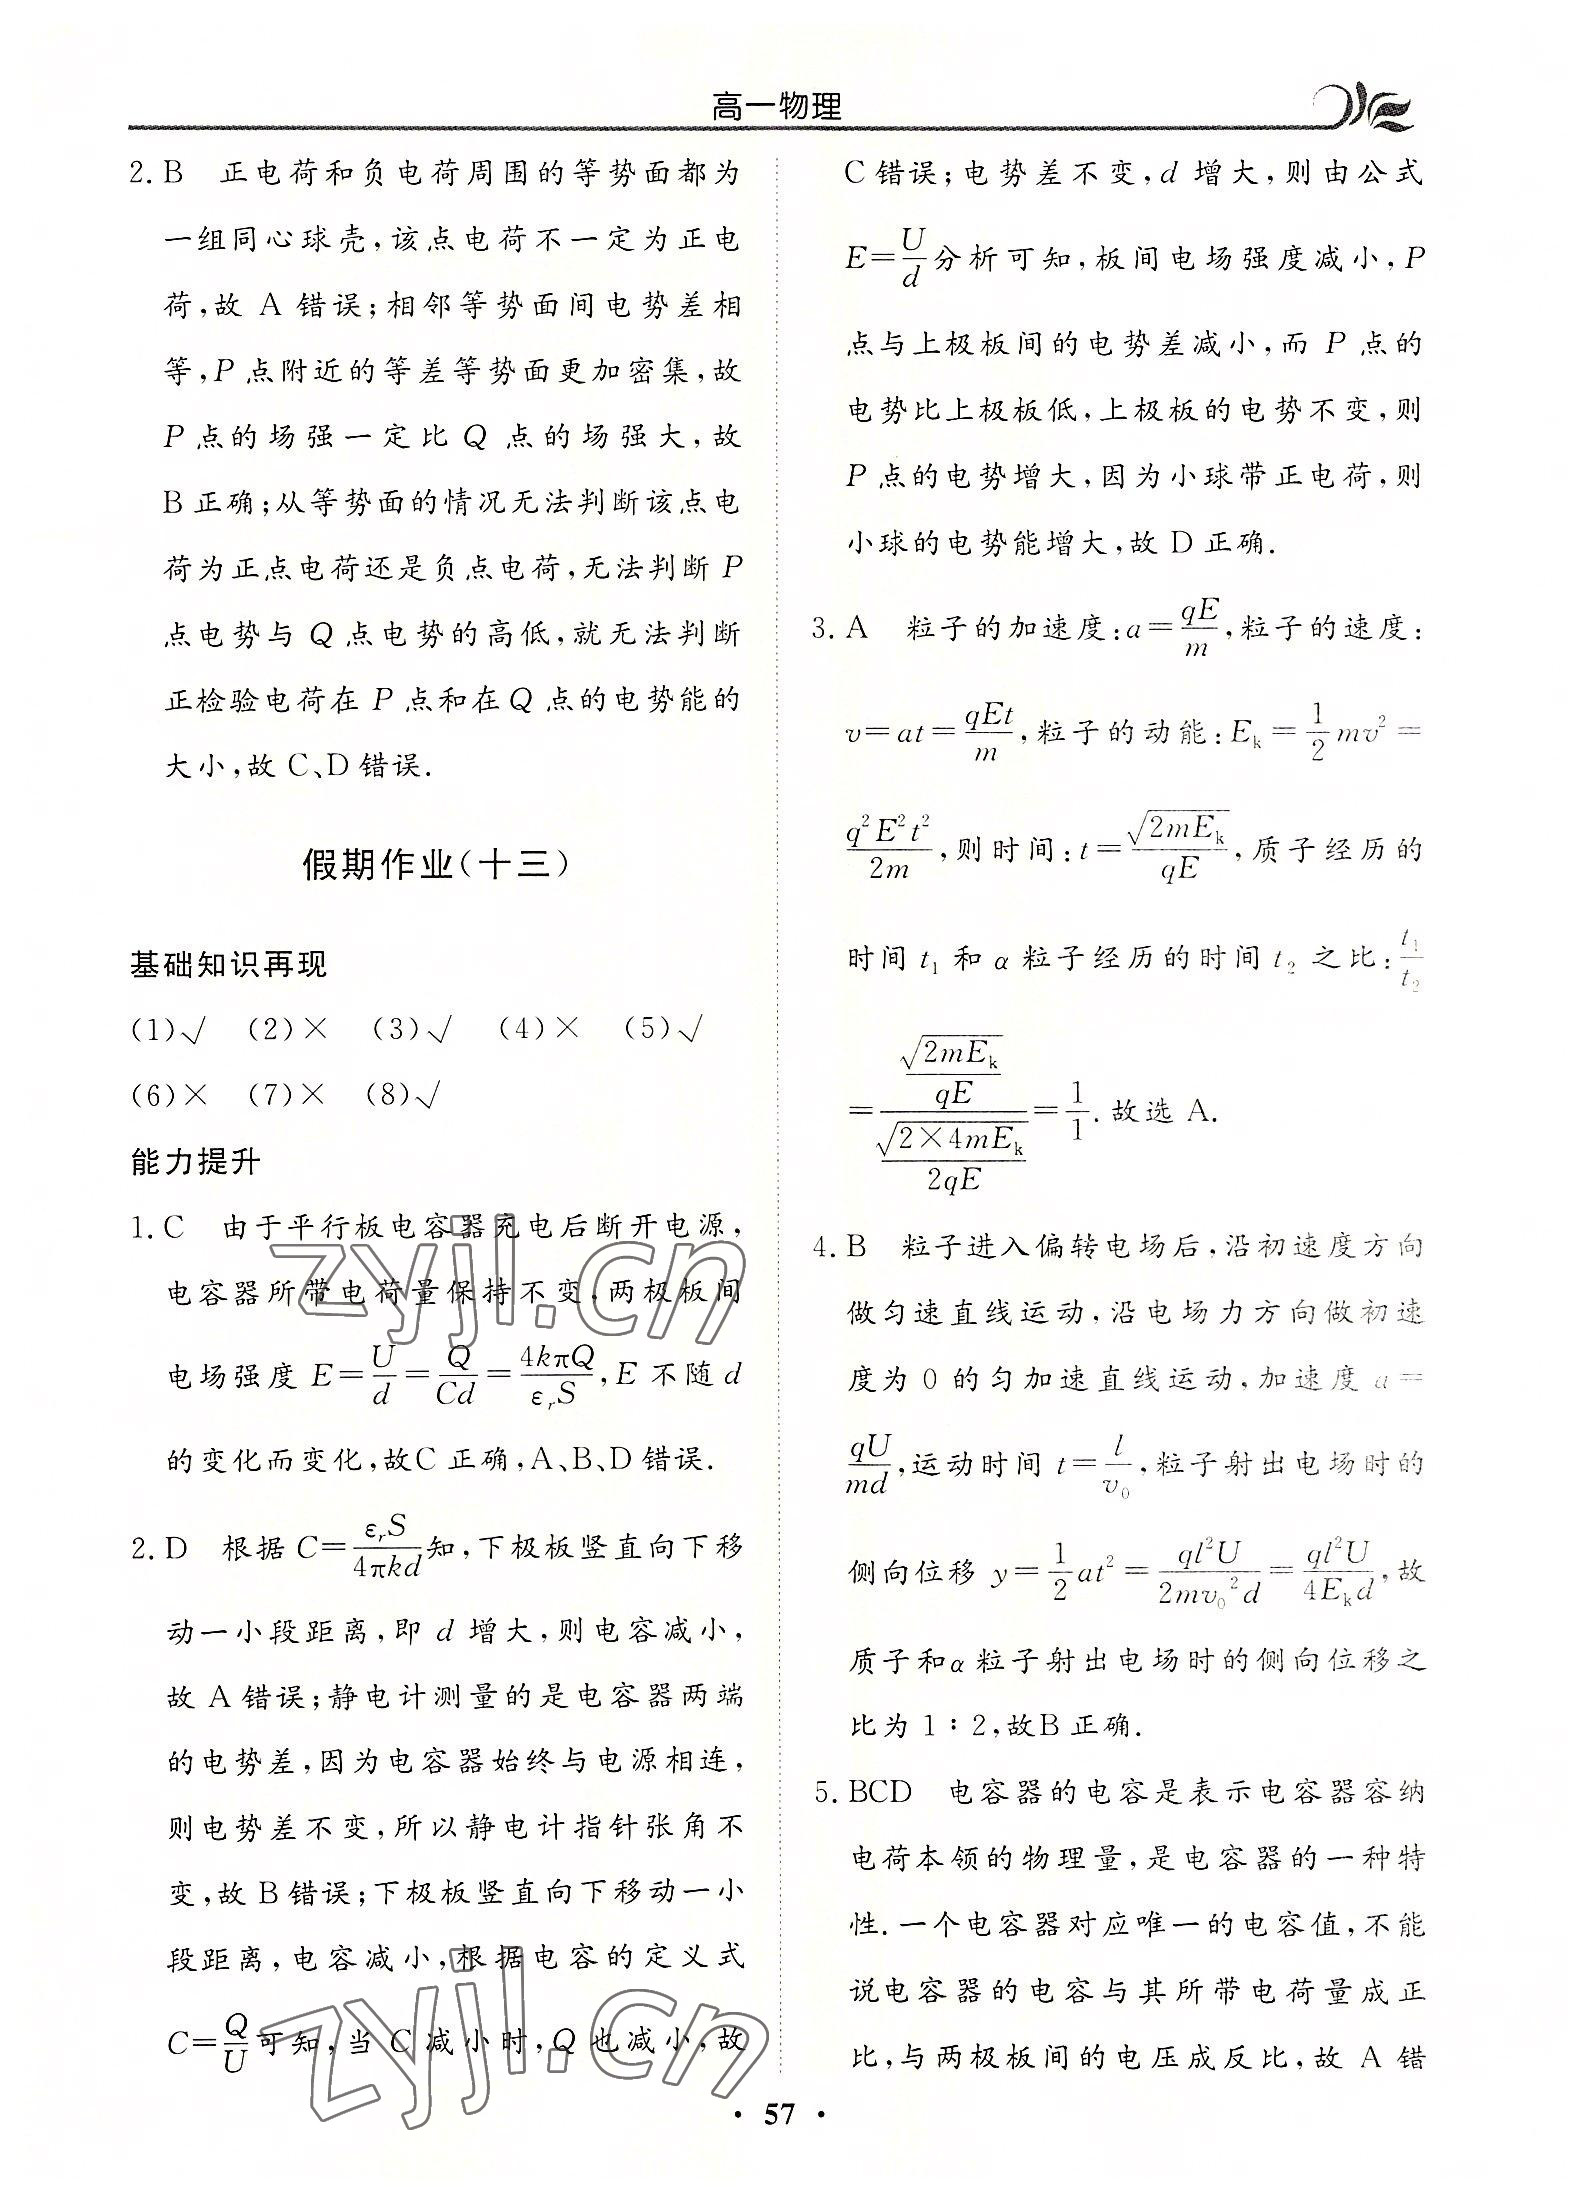 高一物理
2. B　正电荷和负电荷周围的等势面都为
一组同心球壳,该点电荷不一定为正电
荷,故 A 错误;相邻等势面间电势差相
等,P点附近的等差等势面更加密集,故
P点的场强一定比 Q 点的场强大,故
B正确;从等势面的情况无法判断该点电
荷为正点电荷还是负点电荷,无法判断 P
点电势与 Q点电势的高低,就无法判断
正检验电荷在 P 点和在Q 点的电势能的
大小,故 C、D错误.
假期作业(十三)
基础知识再现
(1)√　(2)×　(3)√　(4)×　(5)√
(6)×　(7)×　(8)√
能力提升
1. C　由于平行板电容器充电后断开电源,
电容器所带电荷量保持不变,两极板间
电场强度 E=U/d=Q/Cd=4kπQ/εᵣS,E 不随 d
的变化而变化,故C 正确,A、B、D错误.
2. D　根据 C=εᵣS/4πkd知,下极板竖直向下移
动一小段距离,即 d 增大,则电容减小,
故 A错误;静电计测量的是电容器两端
的电势差,因为电容器始终与电源相连,
则电势差不变,所以静电计指针张角不
变,故 B错误;下极板竖直向下移动一小
段距离,电容减小,根据电容的定义式
C=Q/U可知,当 C 减小时,Q也减小,故
C错误;电势差不变,d 增大,则由公式
E=U/d分析可知,板间电场强度减小,P
点与上极板间的电势差减小,而 P 点的
电势比上极板低,上极板的电势不变,则
P点的电势增大,因为小球带正电荷,则
小球的电势能增大,故 D正确.
3. A　粒子的加速度:a=qE/m,粒子的速度:
v=at=qEt/m,粒子的动能:Eₖ=1/2mv²=
q²E²t²/2m,则时间:t=√(2mEₖ)/qE,质子经历的
时间 t₁ 和 α粒子经历的时间 t₂ 之比:t₁/t₂
=(√(2mEₖ)/qE)/(√(2×4mEₖ)/2qE)=1/1.故选 A.
4. B　粒子进入偏转电场后,沿初速度方向
做匀速直线运动,沿电场力方向做初速
度为 0 的匀加速直线运动,加速度 a=
qU/md,运动时间 t=l/v₀,粒子射出电场时的
侧向位移 y=1/2at²=ql²U/2mv₀²d=ql²U/4Eₖd,故
质子和α粒子射出电场时的侧向位移之
比为1∶2,故B正确.
5. BCD　电容器的电容是表示电容器容纳
电荷本领的物理量,是电容器的一种特
性.一个电容器对应唯一的电容值,不能
说电容器的电容与其所带电荷量成正
比,与两极板间的电压成反比,故 A 错
zyjl.cn
zyjl.cn
· 57 ·